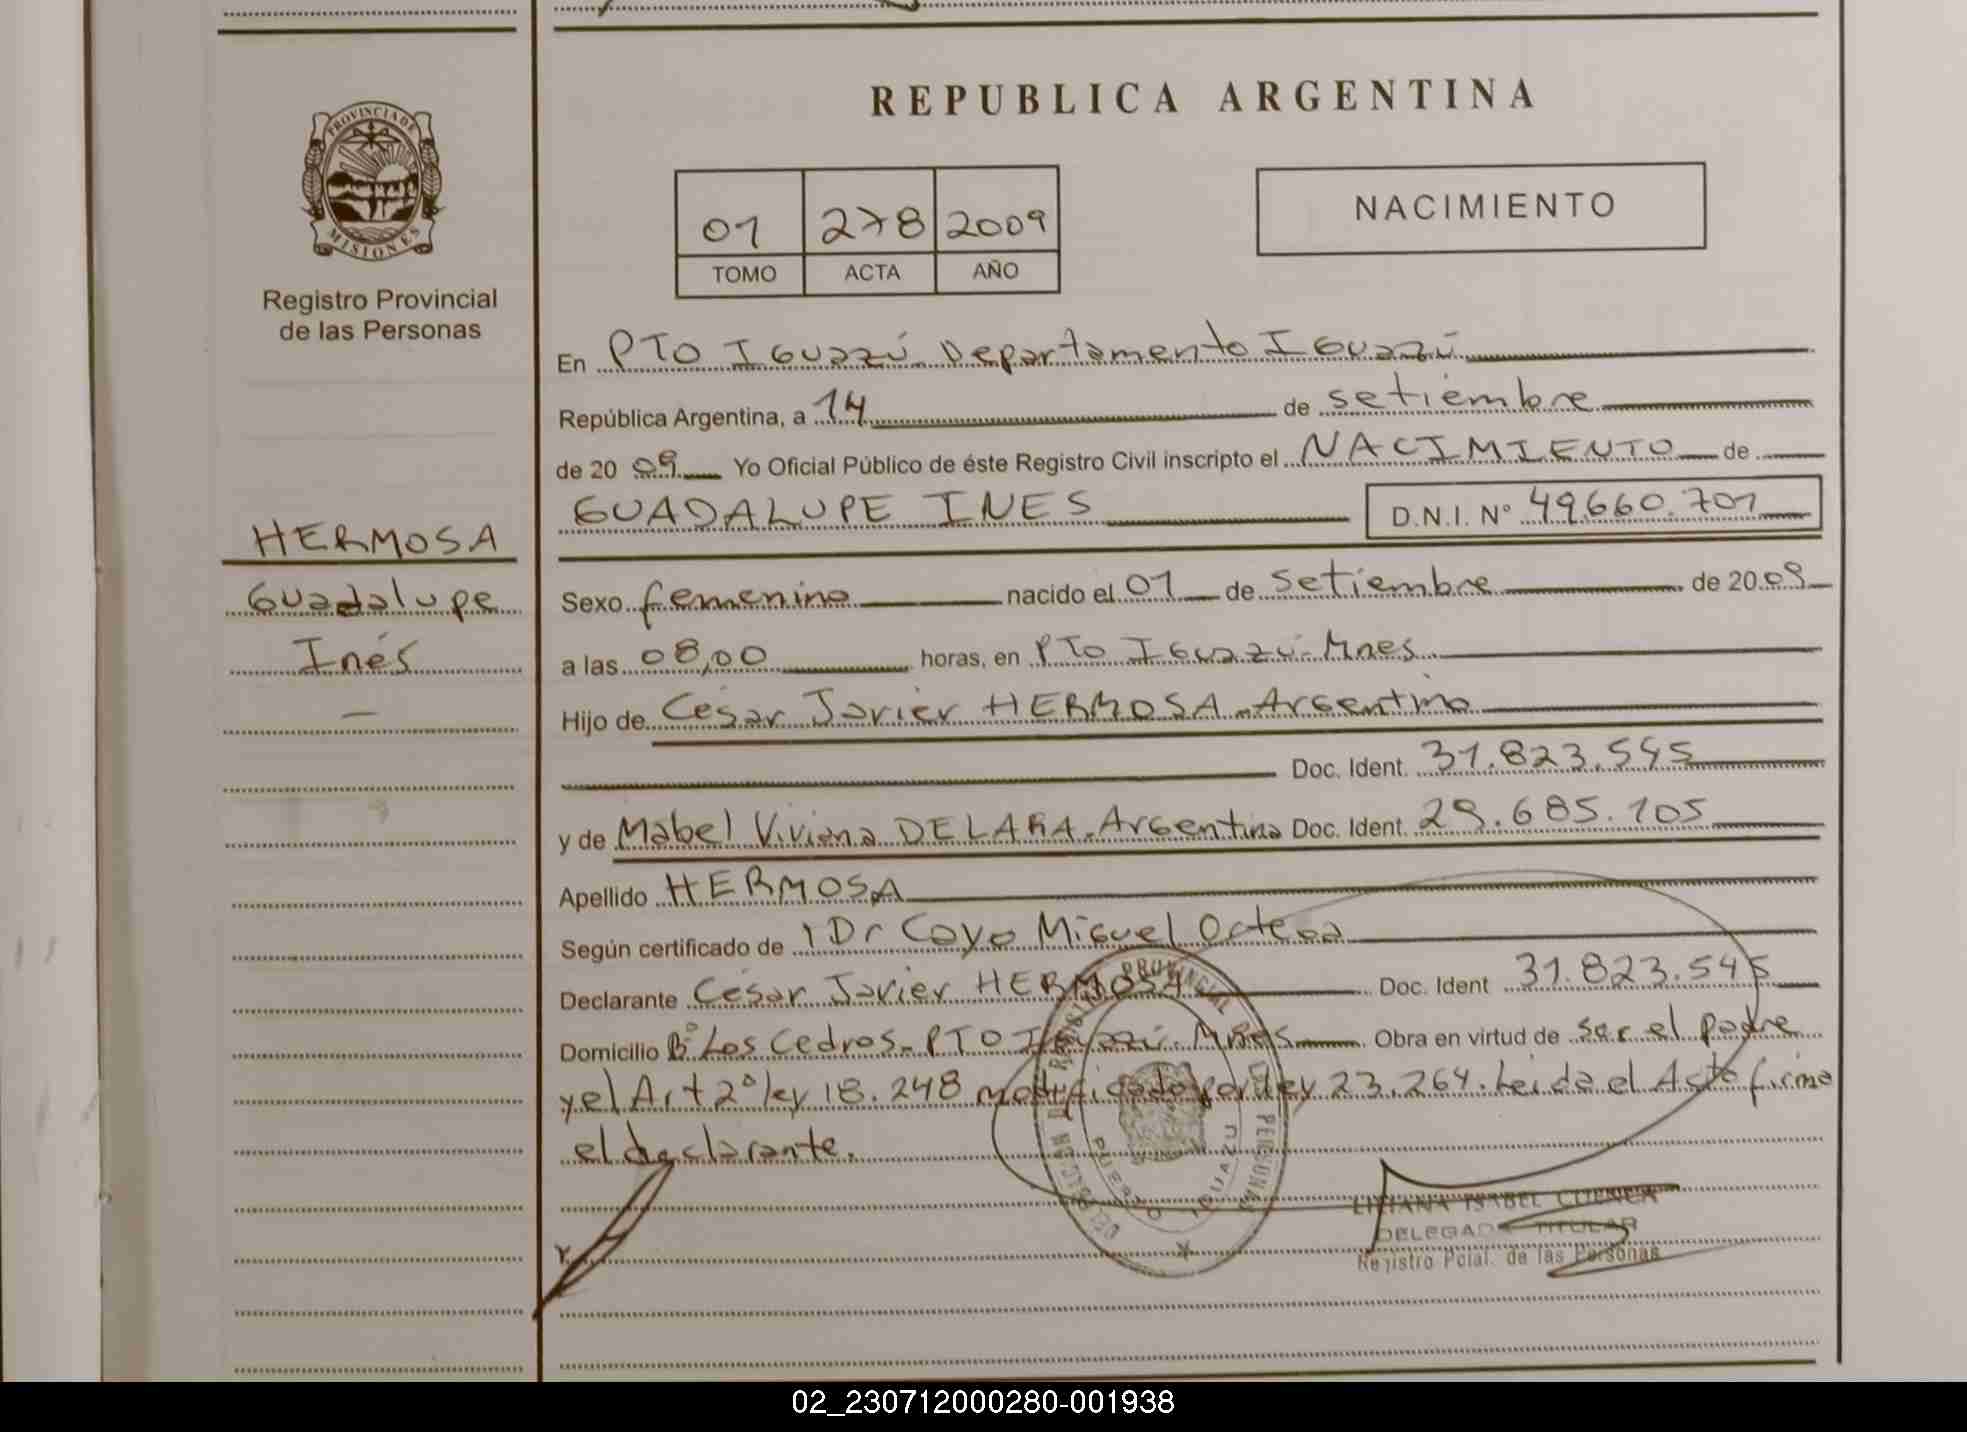 REPUBLICA ARGENTINA
PROVINCIA DE
MISIONES
Registro Provincial
de las Personas
01 278 2009
TOMO ACTA AÑO
NACIMIENTO
En PTO IGUAZÚ. Departamento IGUAZÚ
República Argentina, a 14 de setiembre
de 20 09 Yo Oficial Público de éste Registro Civil inscripto el NACIMIENTO de
GUADALUPE INES D.N.I. Nº 49.660.701
HERMOSA
Guadalupe
Inés
Sexo femenino nacido el 01 de setiembre de 20 09
a las 08,00 horas, en PTO Iguazú-Mnes
Hijo de César Javier HERMOSA-Argentino
Doc. Ident. 31.823.545
y de Mabel Viviana DELARA-Argentina Doc. Ident. 29.685.105
Apellido HERMOSA
Según certificado de Dr Coyo Miguel
Declarante César Javier HERMOSA Doc. Ident 31.823.545
Domicilio Bº Los Cedros-PTO Iguazú-Mnes Obra en virtud de ser el padre
y el Art 2º ley 18.248 modificado por ley 23.264. Leída el Acta firma
el declarante.
REGISTRO PROVINCIAL DE LAS PERSONAS
PUERTO IGUAZU
LILIANA ISABEL CUENCA
DELEGADA TITULAR
Registro Pcial. de las Personas
02_230712000280-001938